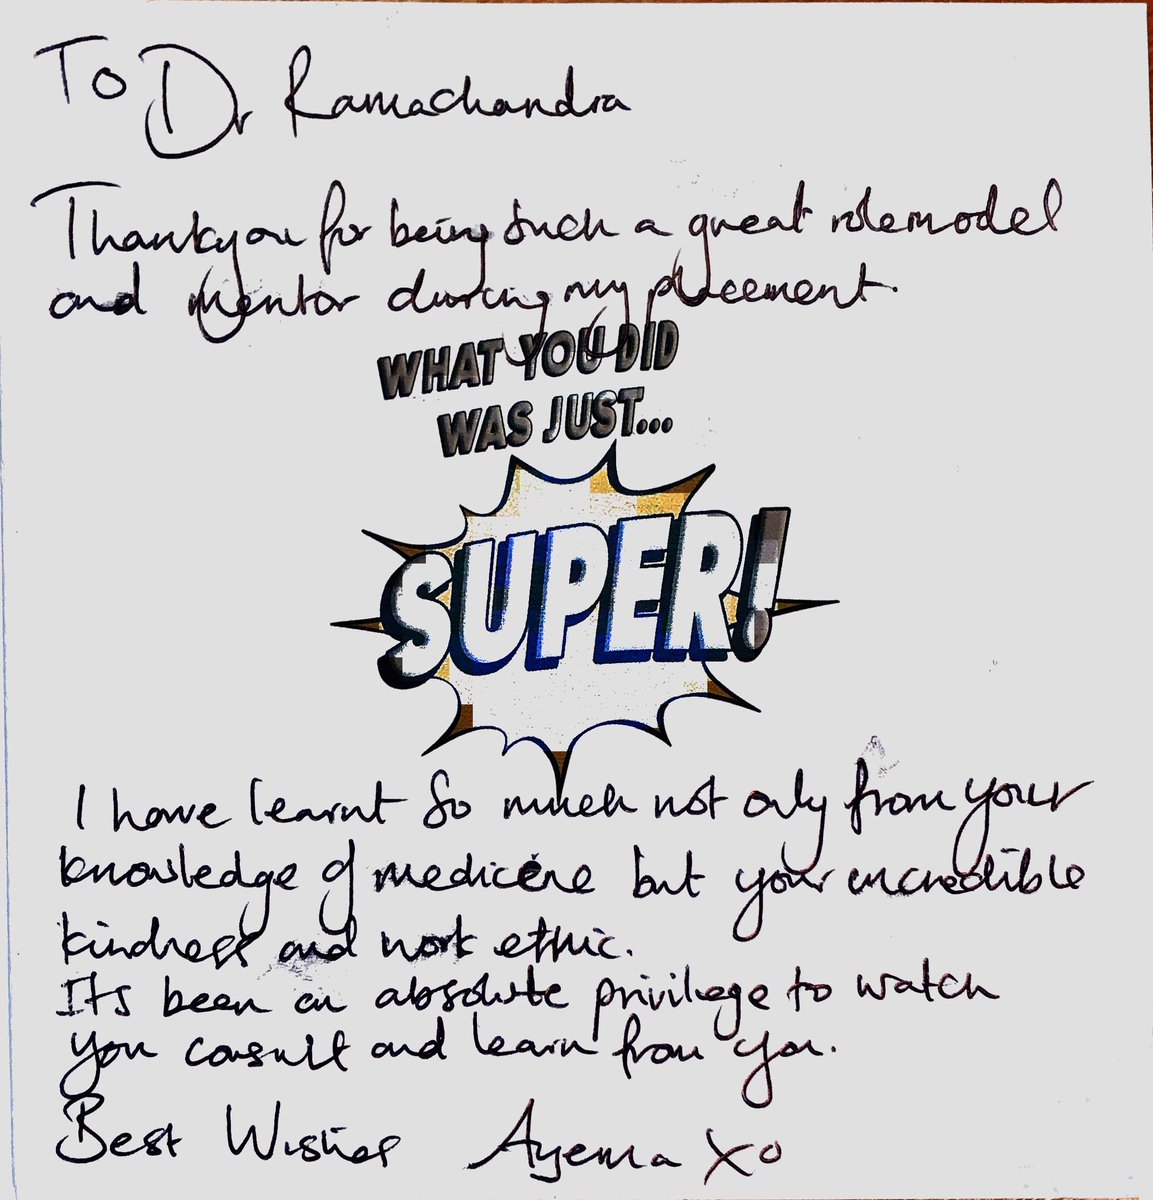 To Dr Ramachandra
Thankyou for being such a great rolemodel
and mentor during my placement.
WHAT YOU DID
WAS JUST...
SUPER!
I have learnt so much not only from your
knowledge of medicine but your incredible
kindness and work ethic.
Its been an absolute privilege to watch
you consult and learn from you.
Best Wishes Ayema xo